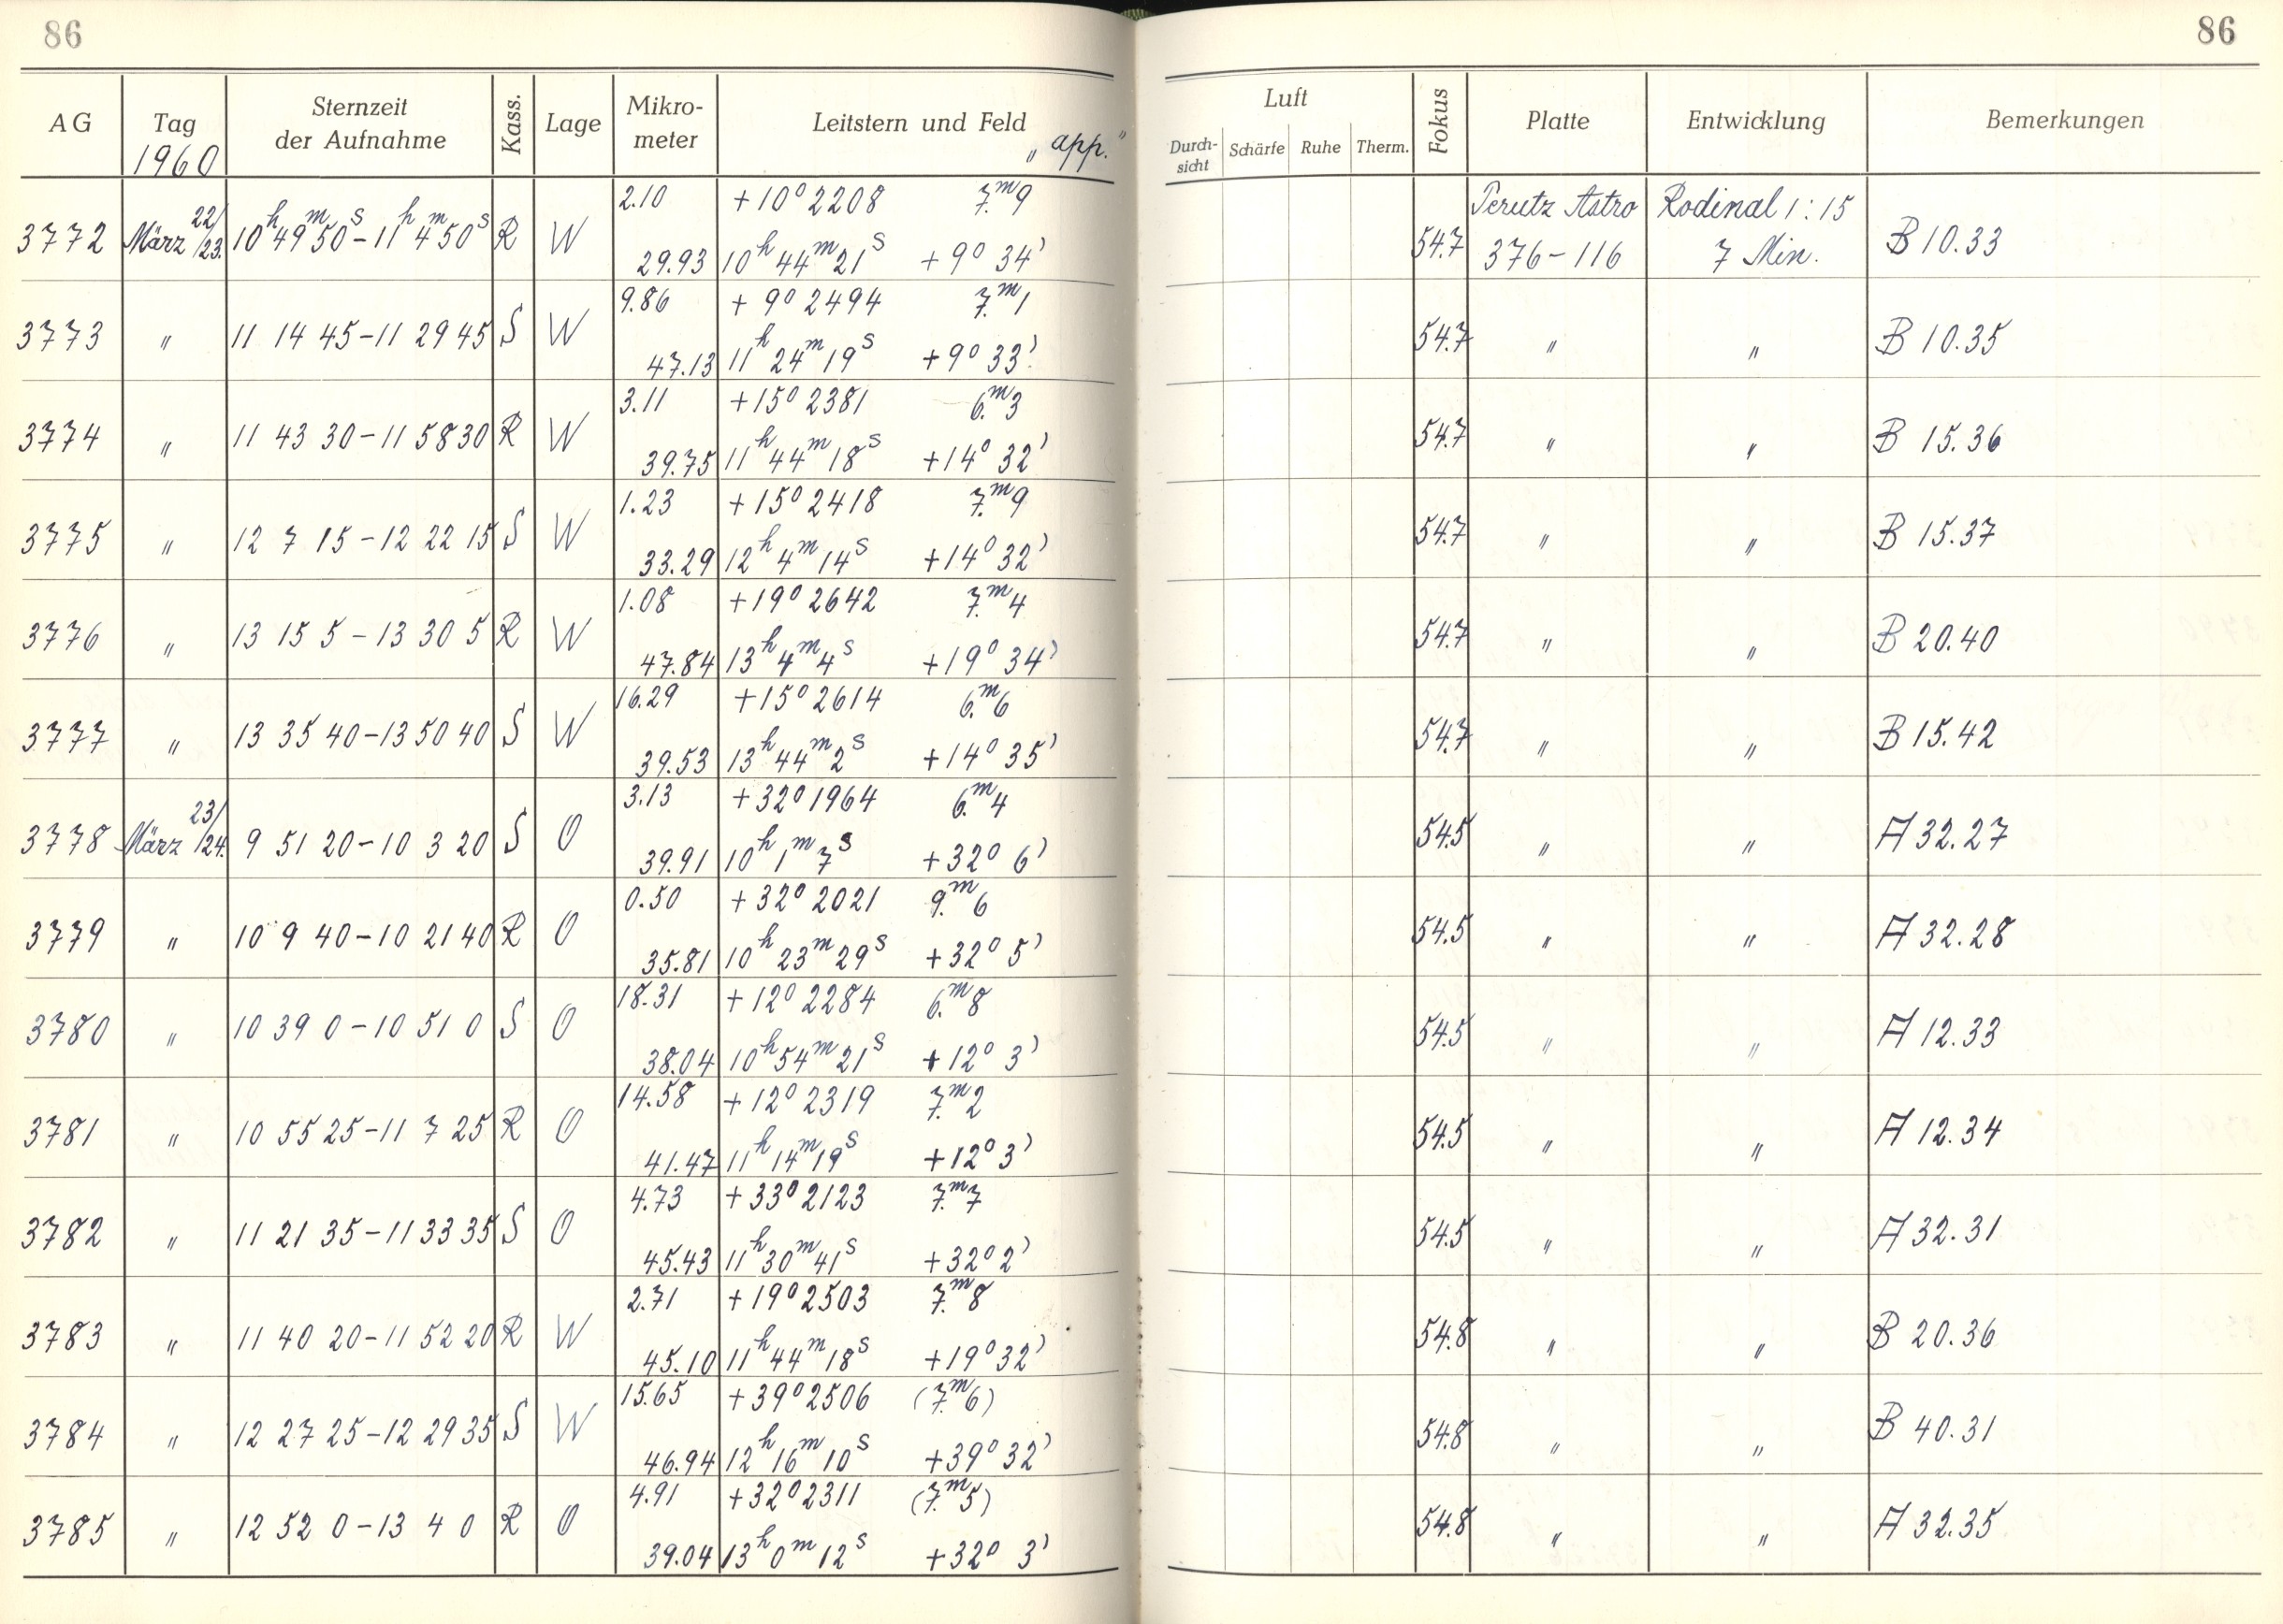 86
86
AG Tag Sternzeit der Aufnahme Kass. Lage Mikro-meter Leitstern und Feld "app." Luft Durch-sicht Schärfe Ruhe Therm. Fokus Platte Entwicklung Bemerkungen
1960
2.10 +10° 2208 7.m9 Perutz Astro Rodinal 1:15
3772 März 22/23. 10h 49m 50s - 11h 4m 50s R W 54.7 B 10.33
29.93 10h 44m 21s +9° 34' 376-116 7 Min.
9.86 +9° 2494 7.m1
3773 " 11 14 45 - 11 29 45 S W 54.7 " " B 10.35
47.13 11h 24m 19s +9° 33'
3.11 +15° 2381 6.m3
3774 " 11 43 30 - 11 58 30 R W 54.7 " " B 15.36
39.75 11h 44m 18s +14° 32'
1.23 +15° 2418 7.m9
3775 " 12 7 15 - 12 22 15 S W 54.7 " " B 15.37
33.29 12h 4m 14s +14° 32'
1.08 +19° 2642 7.m4
3776 " 13 15 5 - 13 30 5 R W 54.7 " " B 20.40
47.84 13h 4m 4s +19° 34'
16.29 +15° 2614 6.m6
3777 " 13 35 40 - 13 50 40 S W 54.7 " " B 15.42
39.53 13h 44m 2s +14° 35'
3.13 +32° 1964 6.m4
3778 März 23/24. 9 51 20 - 10 3 20 S O 54.5 " " A 32.27
39.91 10h 1m 7s +32° 6'
0.50 +32° 2021 9.m6
3779 " 10 9 40 - 10 21 40 R O 54.5 " " A 32.28
35.81 10h 23m 29s +32° 5'
18.31 +12° 2284 6.m8
3780 " 10 39 0 - 10 51 0 S O 54.5 " " A 12.33
38.04 10h 54m 21s +12° 3'
14.58 +12° 2319 7.m2
3781 " 10 55 25 - 11 7 25 R O 54.5 " " A 12.34
41.47 11h 14m 19s +12° 3'
4.73 +33° 2123 7.m7
3782 " 11 21 35 - 11 33 35 S O 54.5 " " A 32.31
45.43 11h 30m 41s +32° 2'
2.71 +19° 2503 7.m8
3783 " 11 40 20 - 11 52 20 R W 54.8 " " B 20.36
45.10 11h 44m 18s +19° 32'
15.65 +39° 2506 (7.m6)
3784 " 12 27 25 - 12 29 35 S W 54.8 " " B 40.31
46.94 12h 16m 10s +39° 32'
4.91 +32° 2311 (7.m5)
3785 " 12 52 0 - 13 4 0 R O 54.8 " " A 32.35
39.04 13h 0m 12s +32° 3'